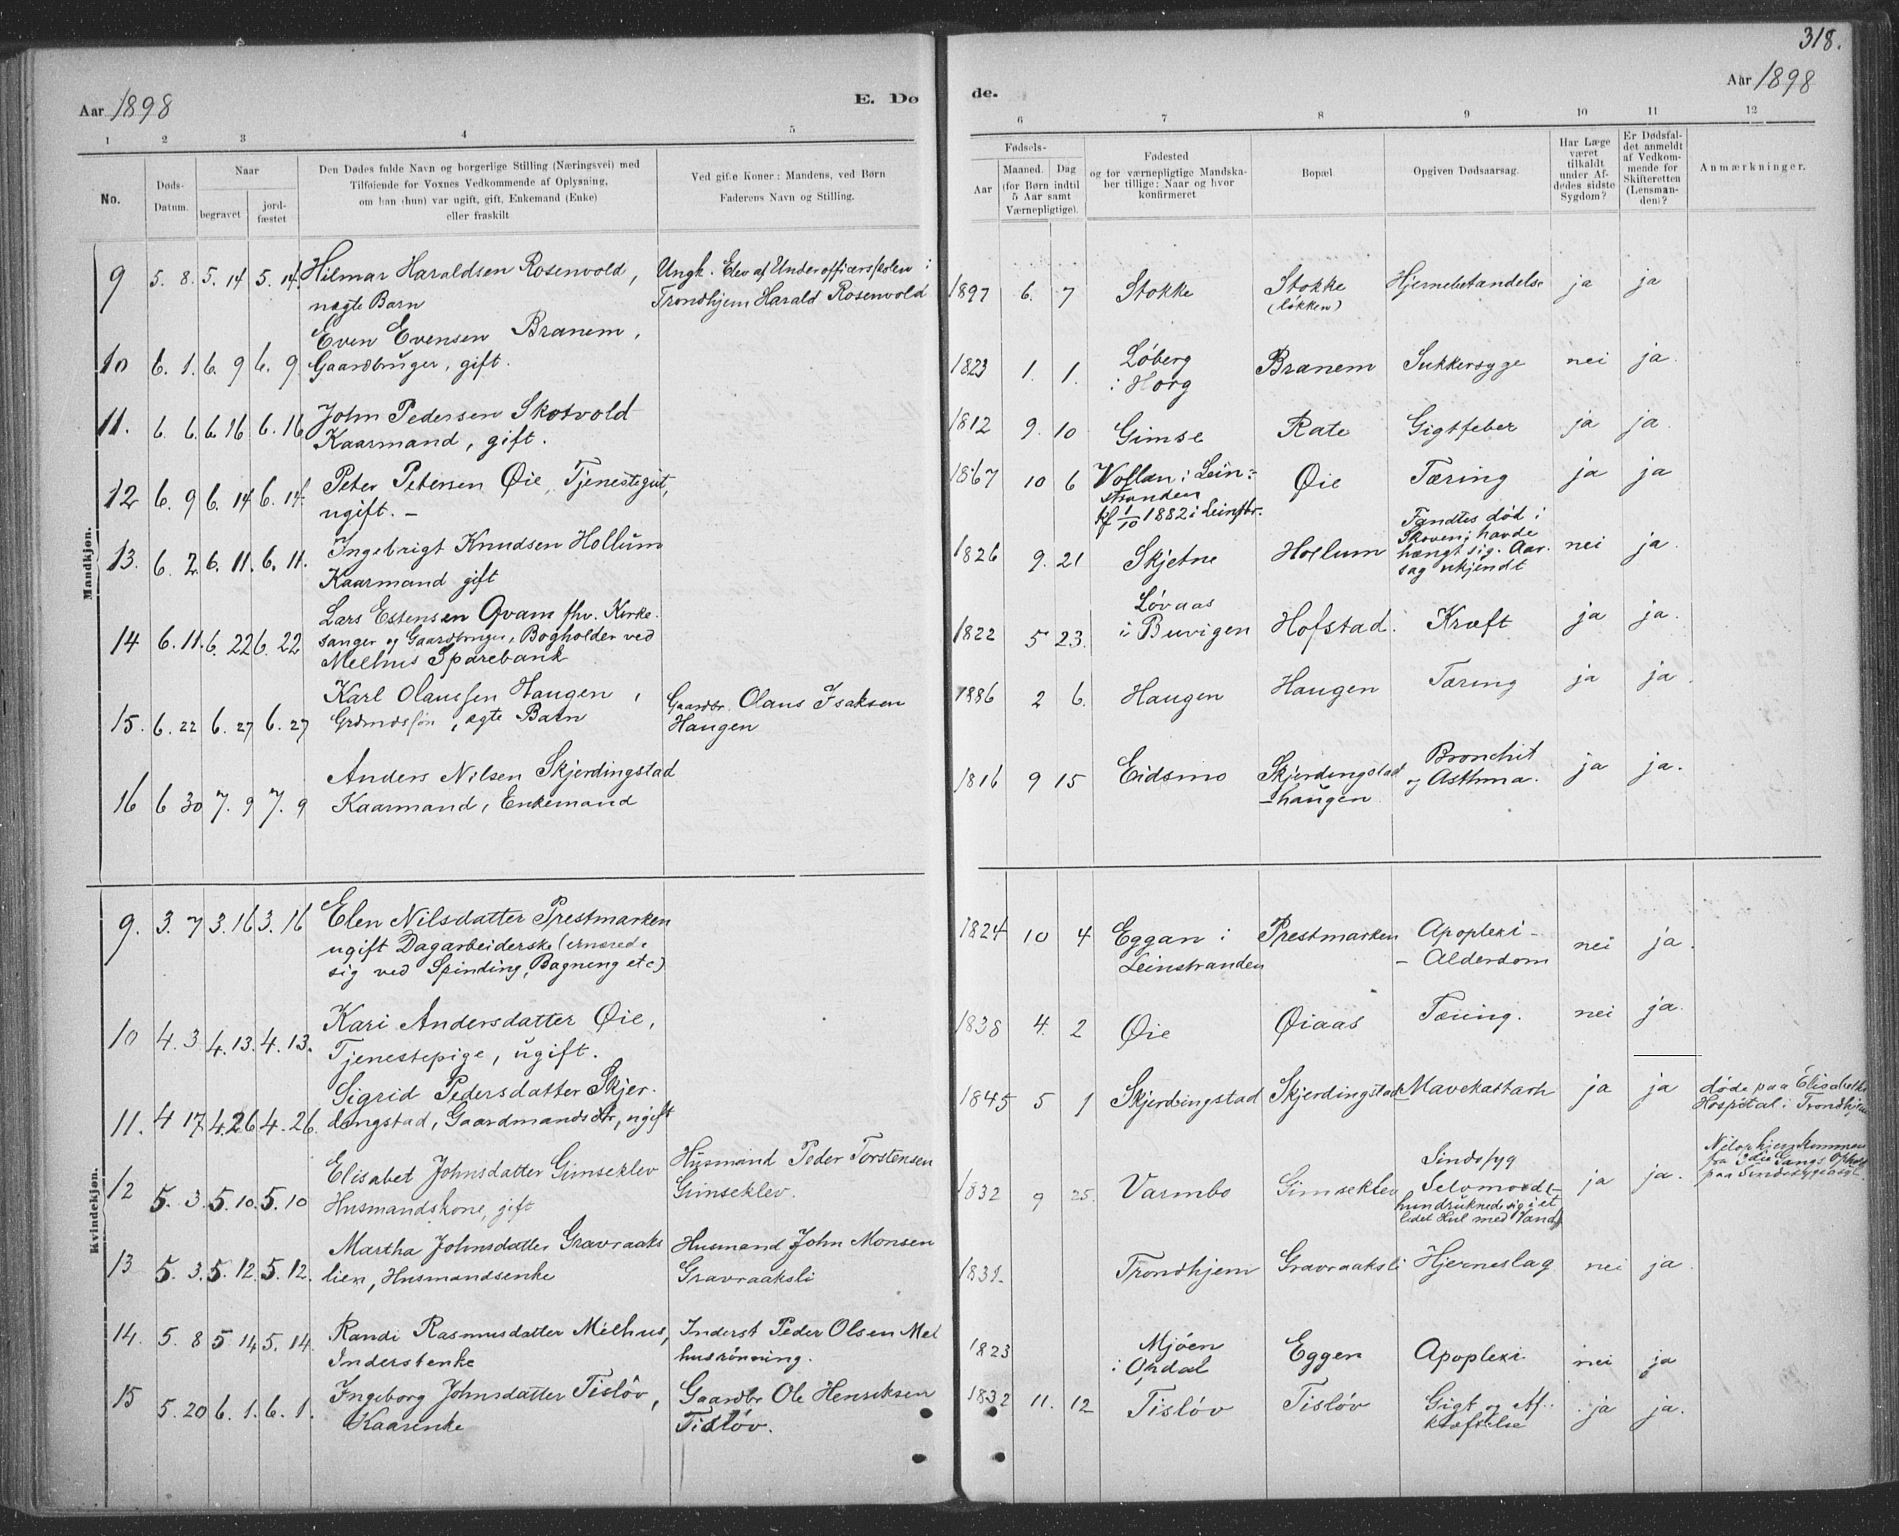 318.
Aar 1898 E. Dø de. Aar 1898
1 2 3 4 5 6 7 8 9 10 11 12
No. Døds-Datum. Naar begravet jordfæstet
Den Dødes fulde Navn og borgerlige Stilling (Næringsvei) med
Tilføiende for Voxnes Vedkommende af Oplysning,
om han (hun) var ugift, gift, Enkemand (Enke)
eller fraskilt
Ved gifte Koner: Mandens, ved Børn
Faderens Navn og Stilling.
Fødsels-
Aar Maaned. Dag
(for Børn indtil
5 Aar samt
Værnepligtige).
Fødested
og for værnepligtige Mandska-
ber tillige: Naar og hvor
konfirmeret
Bopæl.
Opgiven Dødsaarsag.
Har Læge
været
tilkaldt
under Af-
dødes sidste
Sygdom?
Er Dødsfal-
det anmeldt
af Vedkom-
mende for
Skifteretten
(Lensman-
den)?
Anmærkninger.
Mandkjøn.
9 5. 8. 5. 14 5. 14. Hilmar Haraldsen Rosenvold, Ungk. Elev af Underofficersskolen i 1897 6. 7 Stokke Stokke Hjernebetændelse ja ja
nægte Barn Trondhjem Harald Rosenvold (løkken)
10 6. 1. 6. 9 6. 9 Even Evensen Branem, 1823 1. 1. Løberg Branem Sukkersyge nei ja.
Gaardbruger, gift. i Horg
11. 6. 6. 6. 16 6. 16 John Pedersen Skotvold 1812 9. 10 Gimse Rate Gigtfeber ja ja.
Kaarmand, gift.
12 6. 9 6. 14 6. 14. Peter Petersen Øie, Tjenestegut, 1867 10 6 Vollan i Lein- Øie Tæring ja ja
ugift. – stranden
kf 1/10 1882 i Leinstr.
13. 6. 2. 6. 11. 6. 11. Ingebrigt Knudsen Hollum 1826 9. 21 Skjetne Hollum Fandtes død i nei ja.
Kaarmand gift Skoven; havde
hængt sig. Aar-
sag ukjendt
14 6. 11. 6. 22 6. 22 Lars Estensen Qvam fhv. Kirke- 1822 5 23. Løvaas Hofstad. Kræft ja ja.
sanger og Gaardbruger, Bogholder ved i Buvigen
Melhus Sparebank
15. 6. 22 6. 27 6. 27 Karl Olaussen Haugen, Gaardbr. Olaus Isaksen 1886 2 6. Haugen Haugen Tæring ja ja.
Grdmdssøn, ægte Barn Haugen
16 6 30 7. 9 7. 9 Anders Nilsen Skjerdingstad 1816 9 15 Eidsmo Skjerdingstad Bronchit ja ja.
Kaarmand, Enkemand –haugen og Asthma.
Kvindekjøn.
9. 3. 7 3. 16 3. 16 Elen Nilsdatter Prestmarken 1824 10 4 Eggan i Prestmarken Apoplexi – nei ja.
ugift Dagarbeiderske (ernærede Leinstranden – Alderdom
sig ved Spinding, Bagning etc)
10 4. 3. 4. 13. 4. 13. Kari Andersdatter Øie, 1838 4. 2 Øie Øiaas Tæring. nei ja.
Tjenestepige, ugift.
11. 4 17 4. 26 4. 26. Sigrid Pedersdatter Skjer- 1845 5 1 Skjerdingstad Skjerdingstad Mavekattarh ja ja døde paa Elisabeths
dingstad, Gaardmandsdtr, ugift Hospital i Trondhjem
12 5. 3. 5. 10. 5. 10 Elisabet Johnsdatter Gimseklev Husmand Peder Torstensen 1832 9 25. Varmbo Gimseklev Sindssyg ja ja. hjemkommen
Husmandskone, gift Gimseklev. Selvmord fra 3die Gangs Ophold
hun druknede sig i et paa Sindssygeasyl.
lidet Hul med Vand
13 5. 3. 5. 12. 5. 12. Martha Johnsdatter Gravraaks Husmand John Monsen 1831. Trondhjem Gravraaksli Hjerneslag nei ja.
lien, Husmandsenke Gravraaksli
14. 5. 8 5 14 5. 14. Randi Rasmusdatter Melhus, Inderst Peder Olsen Mel 1823 Mjøen Eggen Apoplexi nei ja
Inderstenke husrønning. i Opdal
15 5. 20 6. 1. 6. 1. Ingeborg Johnsdatter Tisløv, Gaardbr Ole Henriksen 1832 11. 12 Tisløv Tisløv Gigt og Af- ja ja.
Kaarenke Tisløv. kræftelse